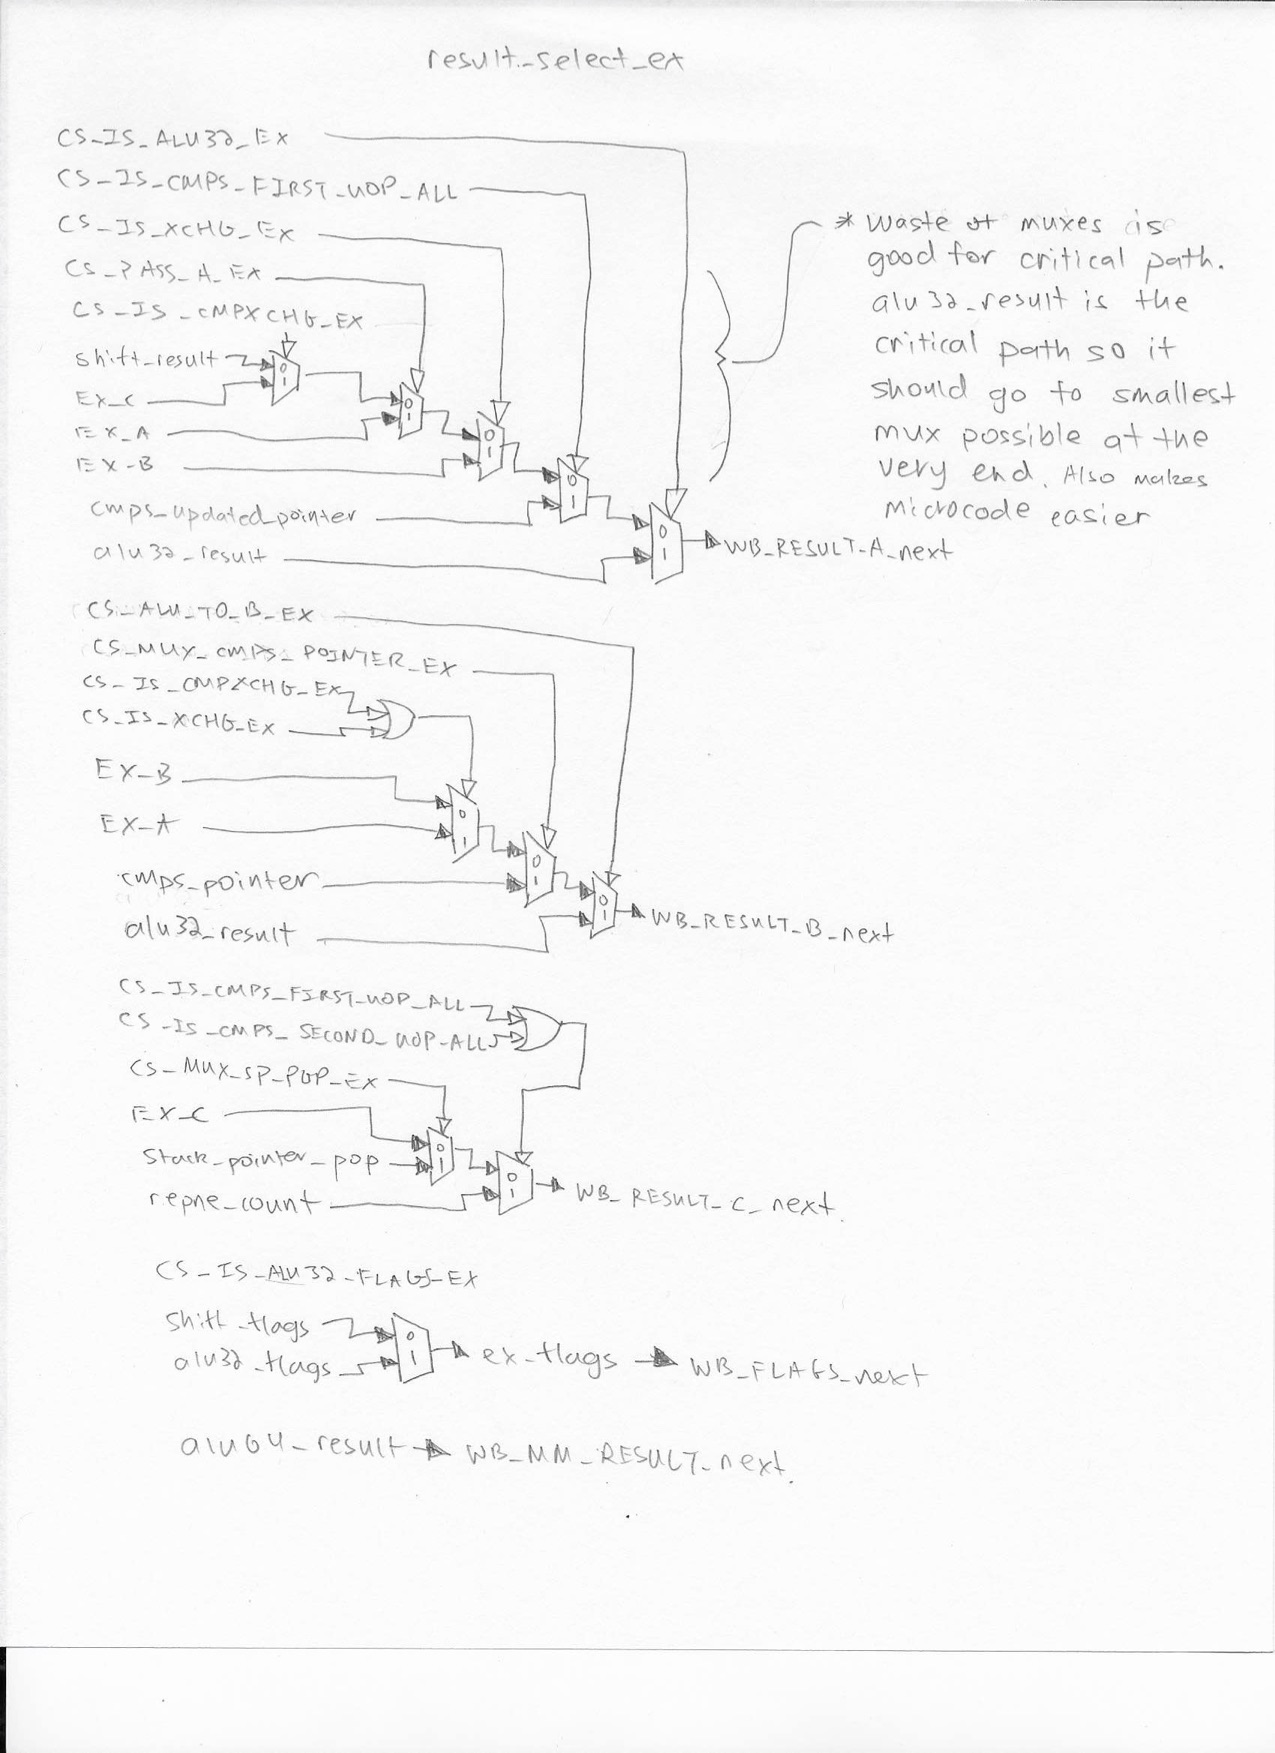 result_select_ex
CS_IS_ALU32_EX
CS_IS_CMPS_FIRST_UOP_ALL
CS_IS_XCHG_EX
CS_PASS_A_EX
CS_IS_CMPXCHG_EX
shift_result
EX_C
EX_A
EX_B
cmps_updated_pointer
alu32_result
0
1
0
1
0
1
0
1
0
1
WB_RESULT_A_next
* Waste of muxes is
good for critical path.
alu32_result is the
critical path so it
should go to smallest
mux possible at the
very end. Also makes
microcode easier
CS_ALU_TO_B_EX
CS_MUX_CMPS_POINTER_EX
CS_IS_CMPXCHG_EX
CS_IS_XCHG_EX
EX_B
EX_A
cmps_pointer
alu32_result
0
1
0
1
0
1
WB_RESULT_B_next
CS_IS_CMPS_FIRST_UOP_ALL
CS_IS_CMPS_SECOND_UOP_ALL
CS_MUX_SP_POP_EX
EX_C
stack_pointer_pop
repne_count
0
1
0
1
WB_RESULT_C_next.
CS_IS_ALU32_FLAGS_EX
shift_flags
alu32_flags
0
1
ex_flags WB_FLAGS_next
alu64_result WB_MM_RESULT_next.